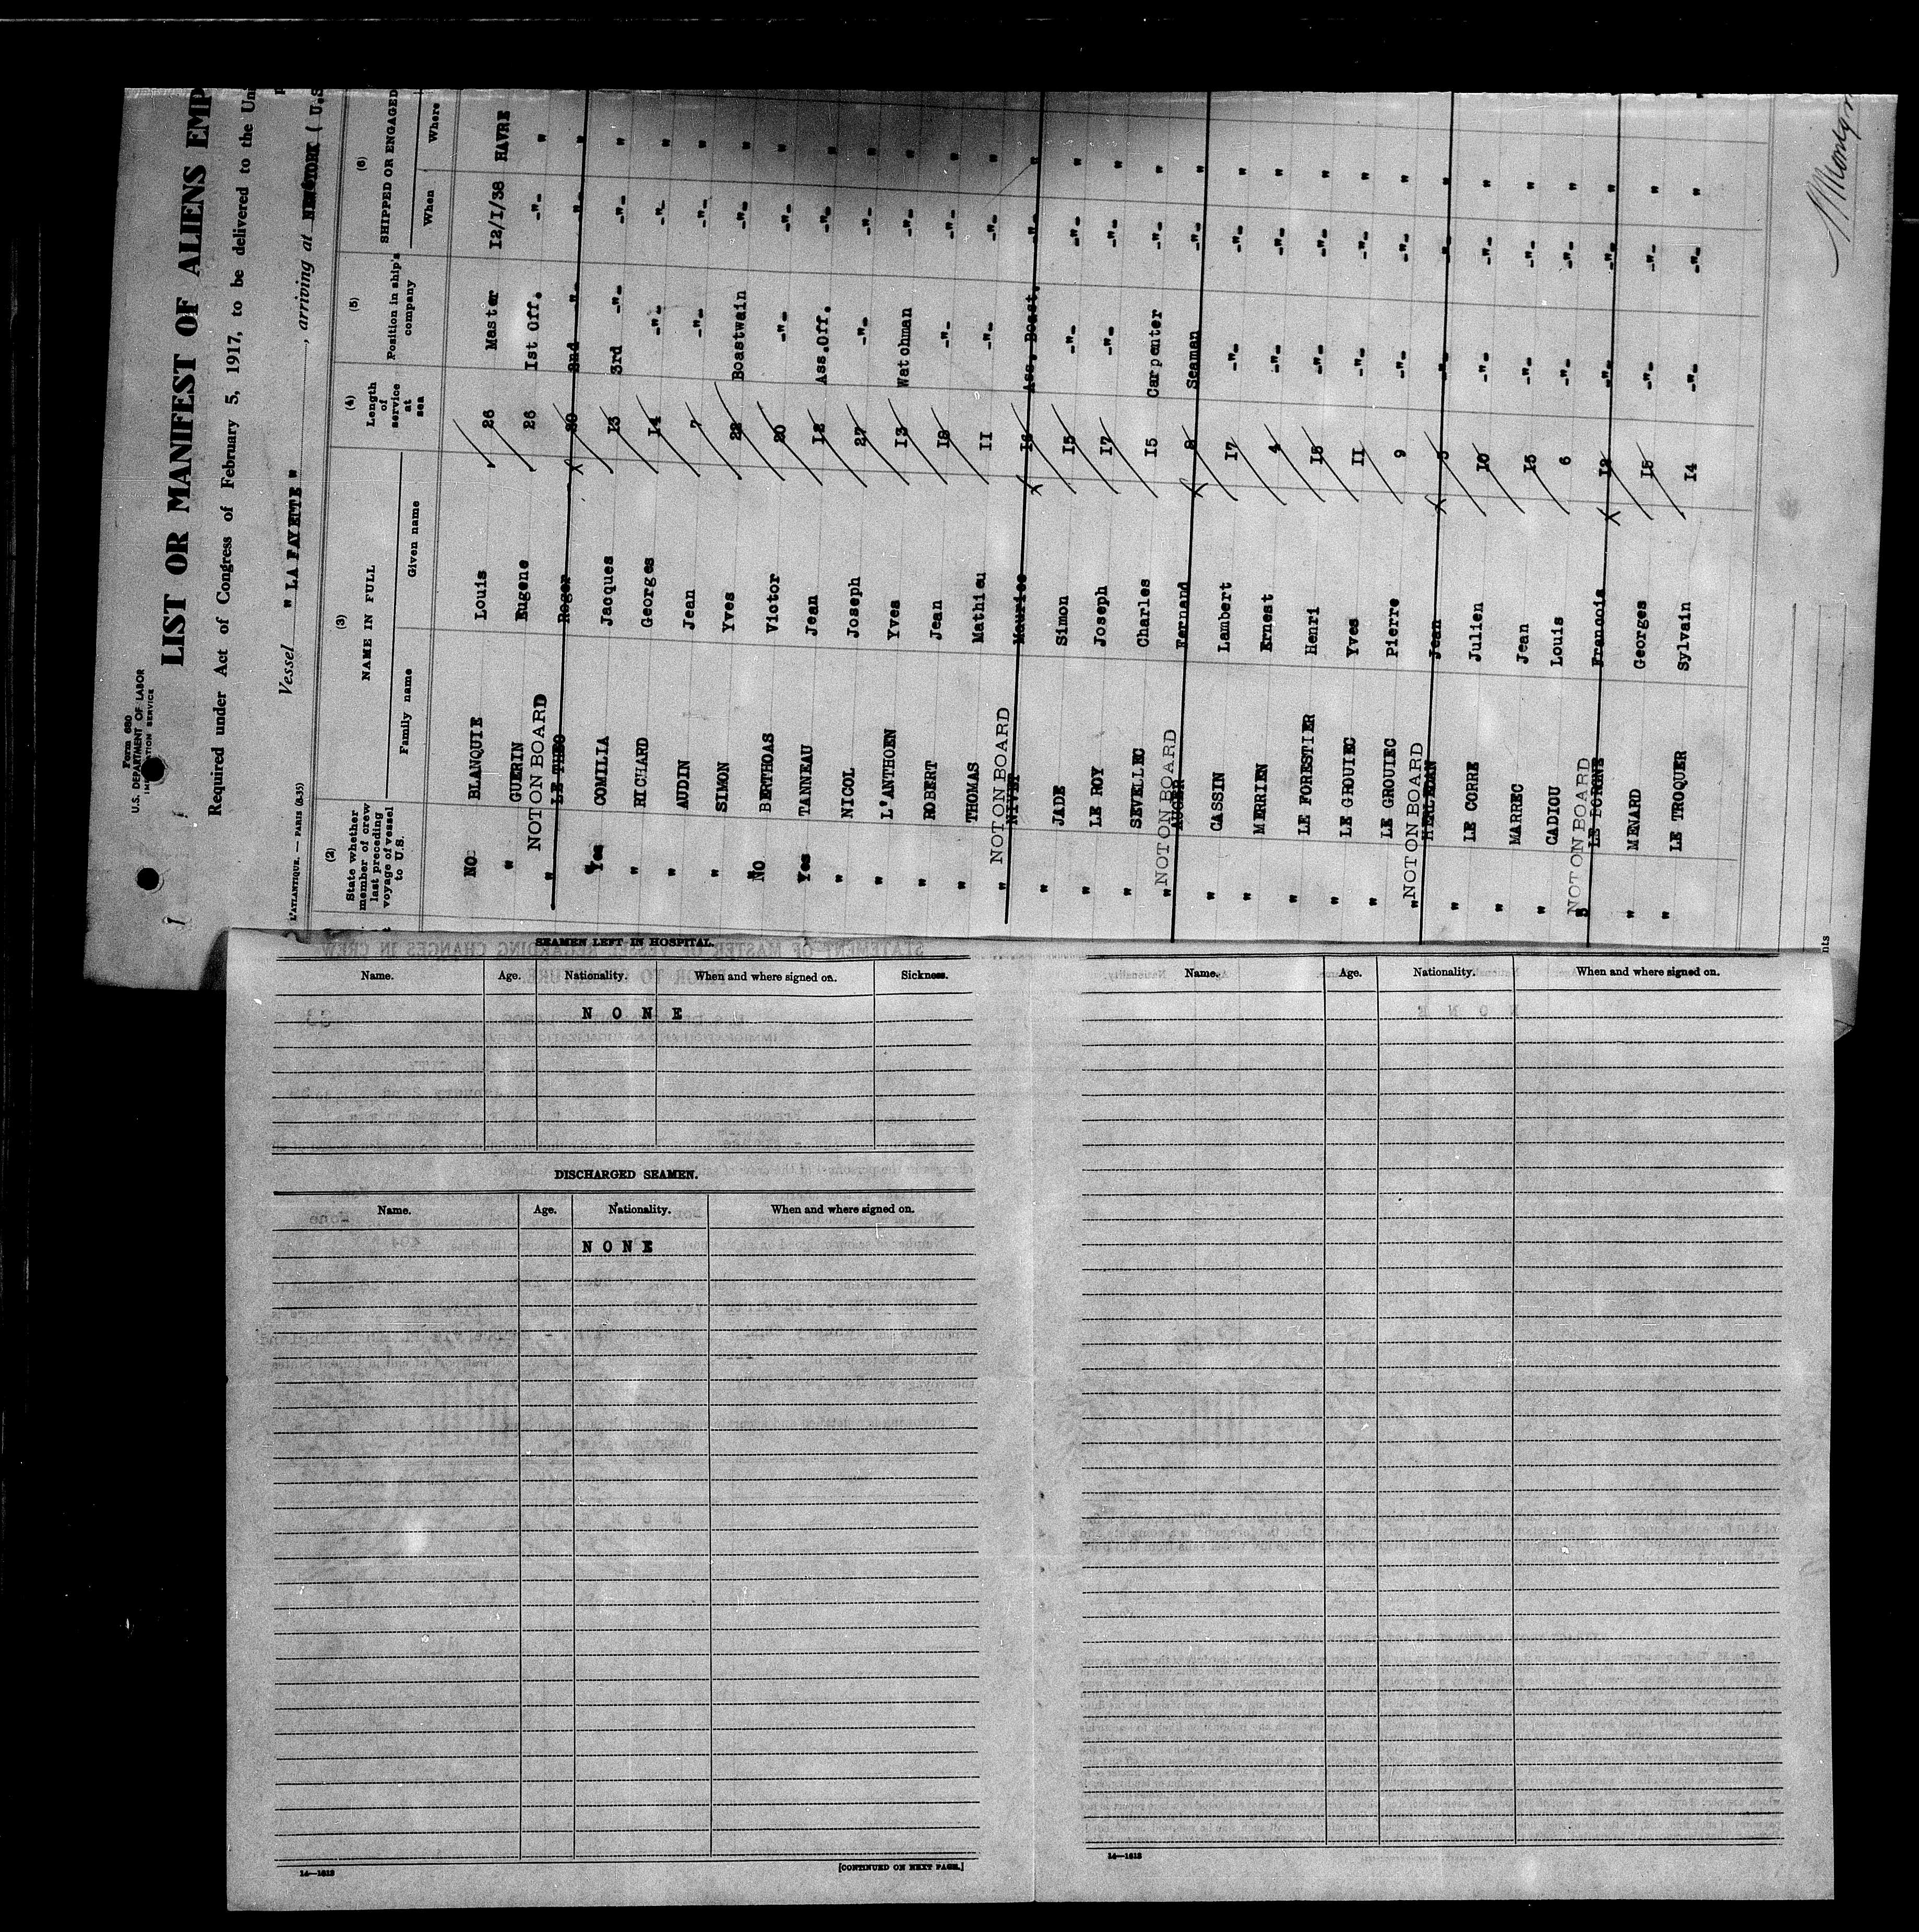 Form 680
U.S. DEPARTMENT OF LABOR
LIST OR MANIFEST OF ALIENS EMP
Required under Act of Congress of February 5, 1917, to be delivered to the Un
Vessel " LA FAYETTE " , arriving at NEW YORK ( U.S
L'ATLANTIQUE. — PARIS (8-35)
(2) (3) (4) (5) (6)
State whether member of crew last preceding voyage of vessel to U.S. NAME IN FULL Length of service at sea Position in ship's company SHIPPED OR ENGAGED
Family name Given name When Where
NO BLANQUIE Louis 26 Master 12/1/38 HAVRE
" GUERIN Eugene 26 1st Off. -"- "
NOT ON BOARD
" LE THEO Roger 20 2nd -"- -"- "
Yes COMILLA Jacques 13 3rd -"- -"- "
" RICHARD Georges 14 -"- -"- "
" AUDIN Jean 7 -"- -"- "
" SIMON Yves 22 Boastwain -"- "
NO BERTHOAS Victor 20 -"- -"- "
Yes TANNEAU Jean 12 Ass.Off. -"- "
" NICOL Joseph 27 -"- -"- "
" L'ANTHOEN Yves 13 Watchman -"- "
" ROBERT Jean 18 -"- -"- "
" THOMAS Mathieu 11 -"- -"- "
NOT ON BOARD
" NIVET Maurice 14 Ass. Boast. -"- "
" JADE Simon 15 -"- -"- "
" LE ROY Joseph 17 -"- -"- "
" SEVELLEC Charles 15 Carpenter -"- "
NOT ON BOARD
" AUGER Fernand 8 Seaman -"- "
" CASSIN Lambert 17 -"- -"- "
" MERRIEN Ernest 4 -"- -"- "
" LE FORESTIER Henri 18 -"- -"- "
" LE GROUIEC Yves 11 -"- -"- "
" LE GROUIEC Pierre 9 -"- -"- "
NOT ON BOARD
" Jean -"- -"- "
" LE CORRE Julien 10 -"- -"- "
" MARREC Jean 15 -"- -"- "
" CADIOU Louis 6 -"- -"- "
NOT ON BOARD
LE BORGNE Francois 12 -"- -"- "
" MENARD Georges 15 -"- -"- "
" LE TROQUER Sylvain 14 -"- -"- "
SEAMEN LEFT IN HOSPITAL.
Name. Age. Nationality. When and where signed on. Sickness.
N O N E
DISCHARGED SEAMEN.
Name. Age. Nationality. When and where signed on.
N O N E
14—1613
[CONTINUED ON NEXT PAGE.]
Name. Age. Nationality. When and where signed on.
14—1613